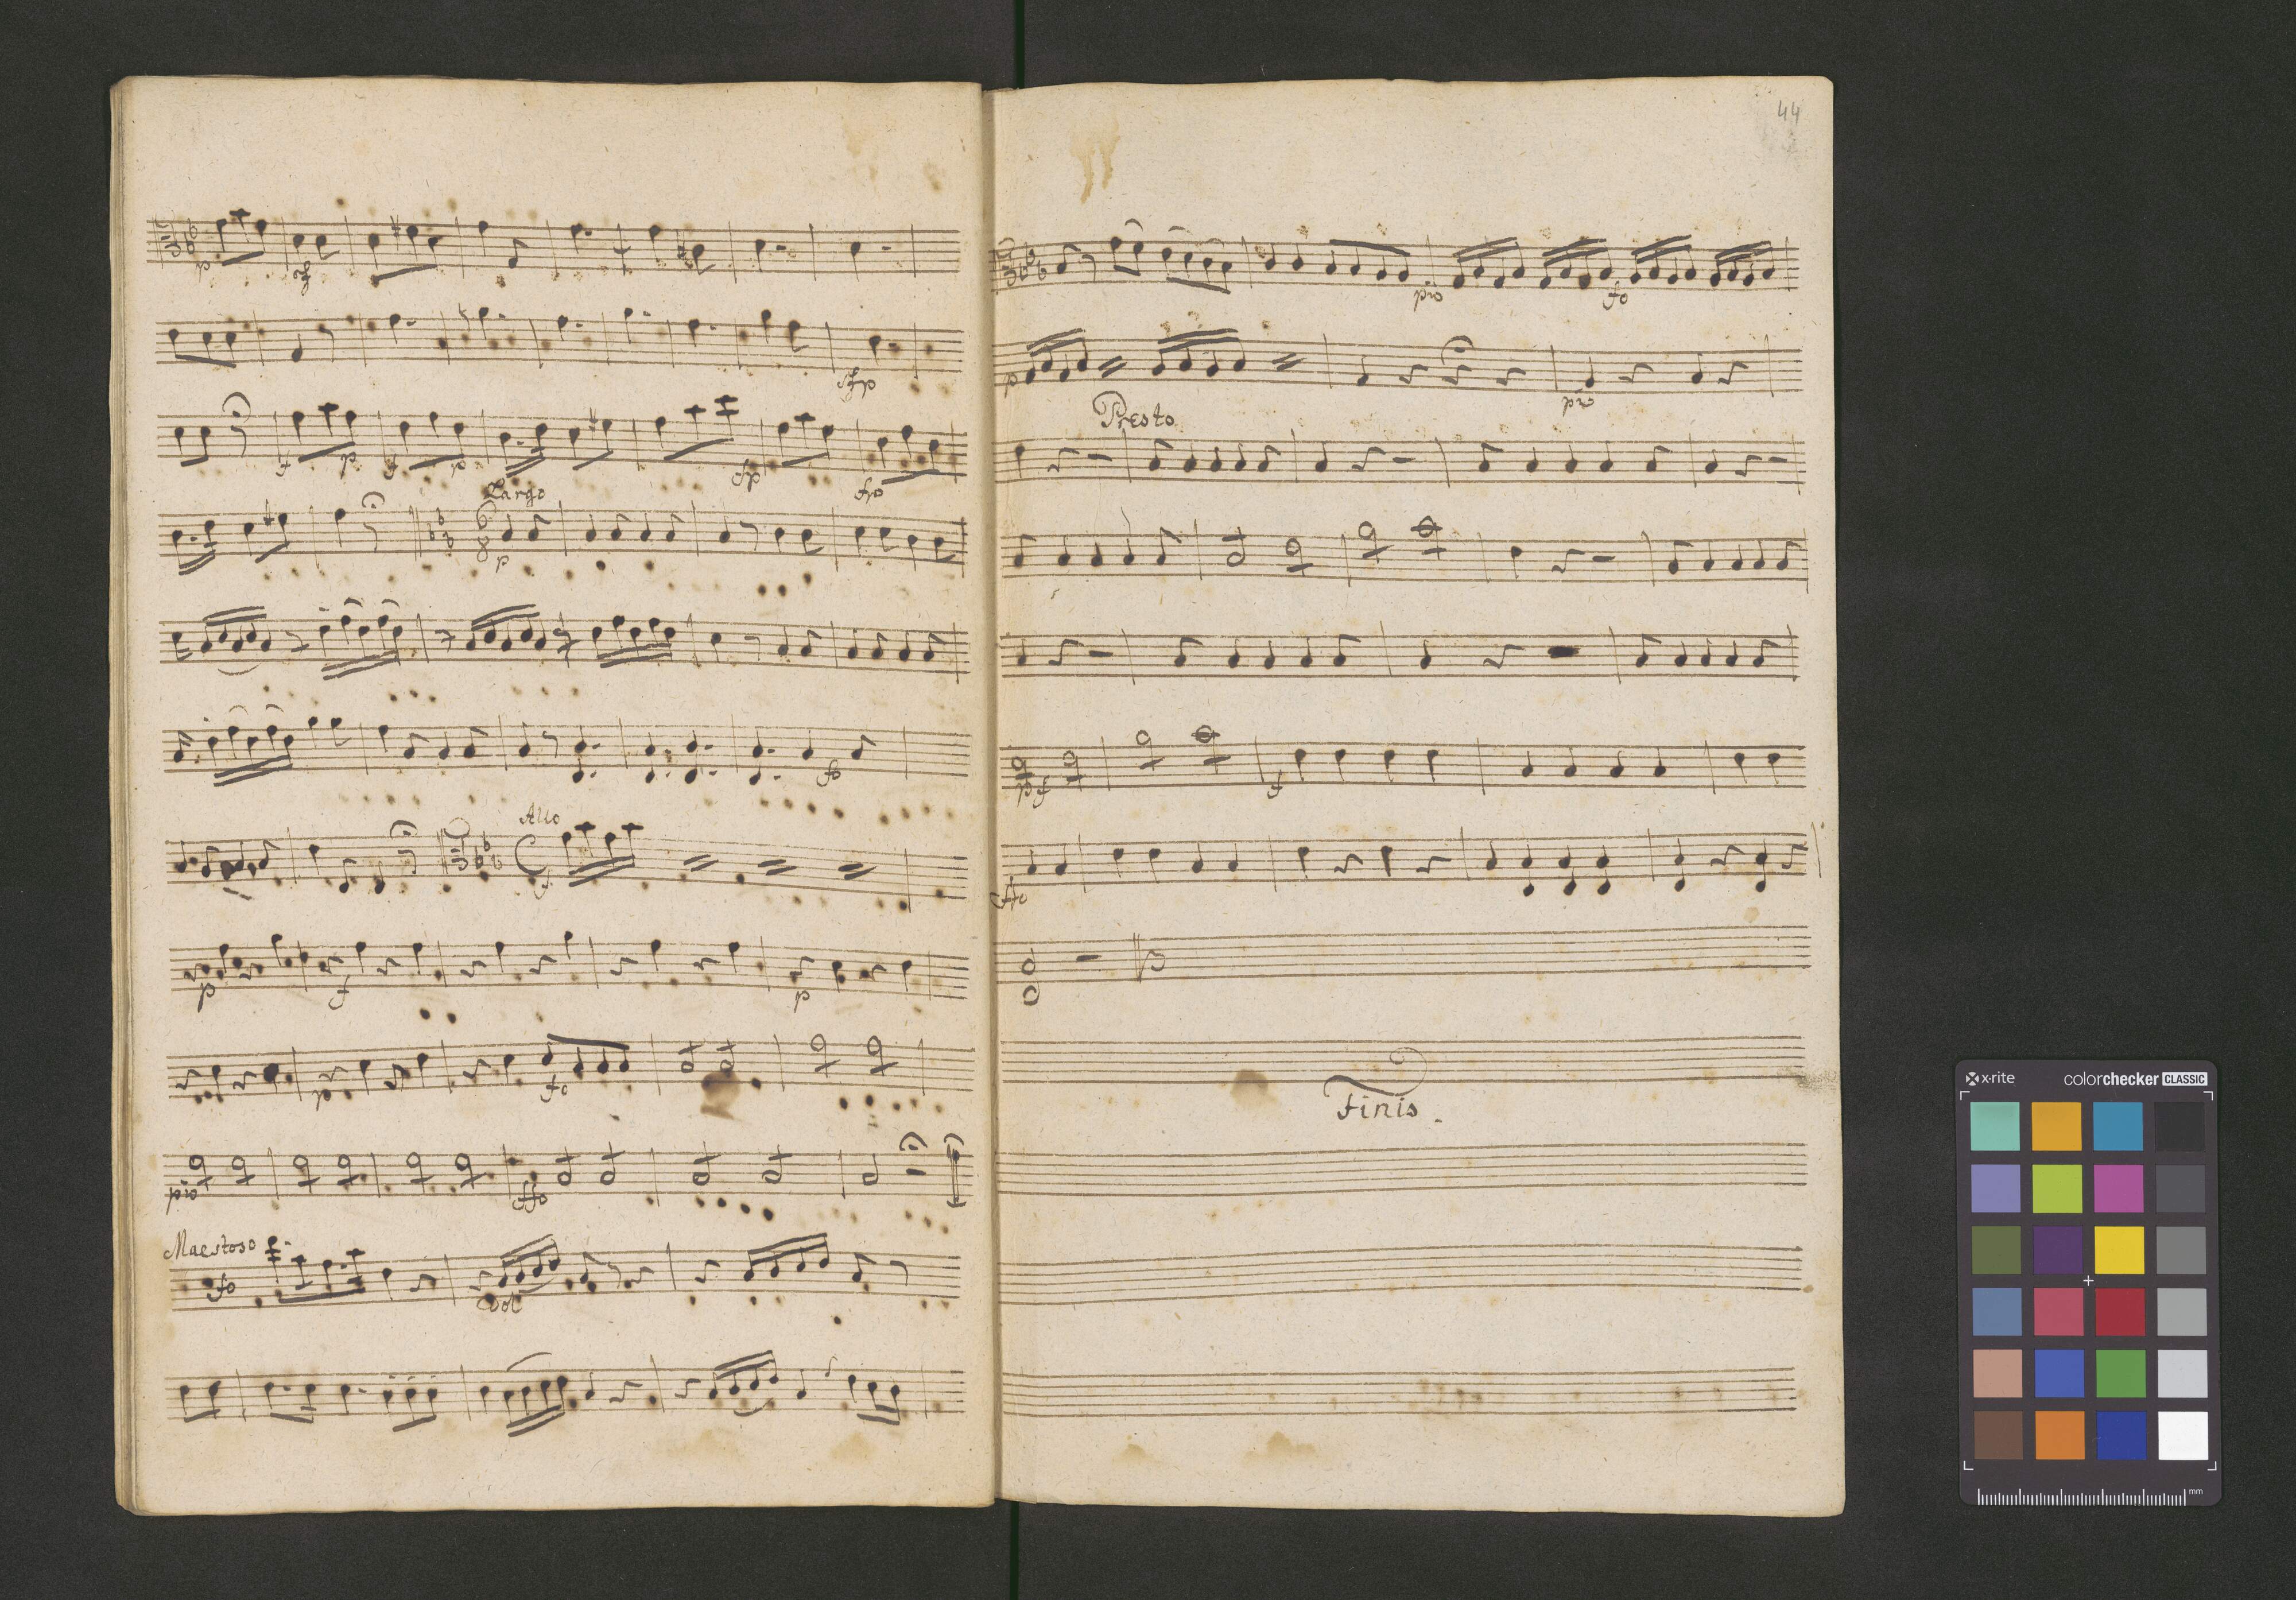 p f
sfp
f p f p sfp fp
Largo
6
8
p
fo
Allo
f
p f p
p fo
pio ffo
Maestoso
fo
Vol
44
pio fo
p pio
Presto
pf f
ffo
Finis.
x-rite colorchecker CLASSIC
mm